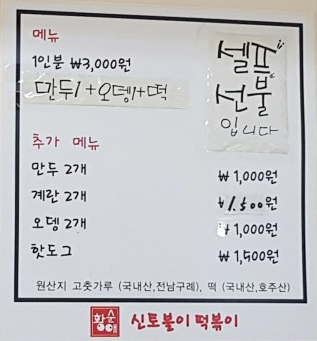 메뉴
1인분 ₩3,000원
만두1+오뎅1+떡
셀프
선불
입니다
추가 메뉴
만두 2개 ₩1,000원
계란 2개 ₩1,500원
오뎅 2개 ₩1,000원
핫도그 ₩1,500원
원산지 고춧가루 (국내산,전남구례), 떡 (국내산,호주산)
신토불이 떡볶이